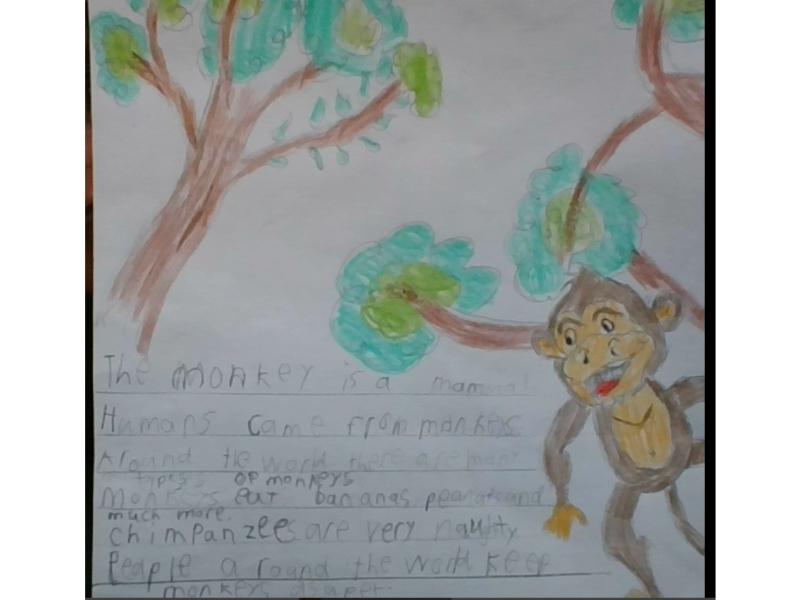 The monkey is a mammal
Humans came from monkeys
Around the world there are many
types of monkeys
Monkeys eat bananas, peanuts and
much more.
chimpanzees are very naughty
People around the world keep
monkeys as a pet.